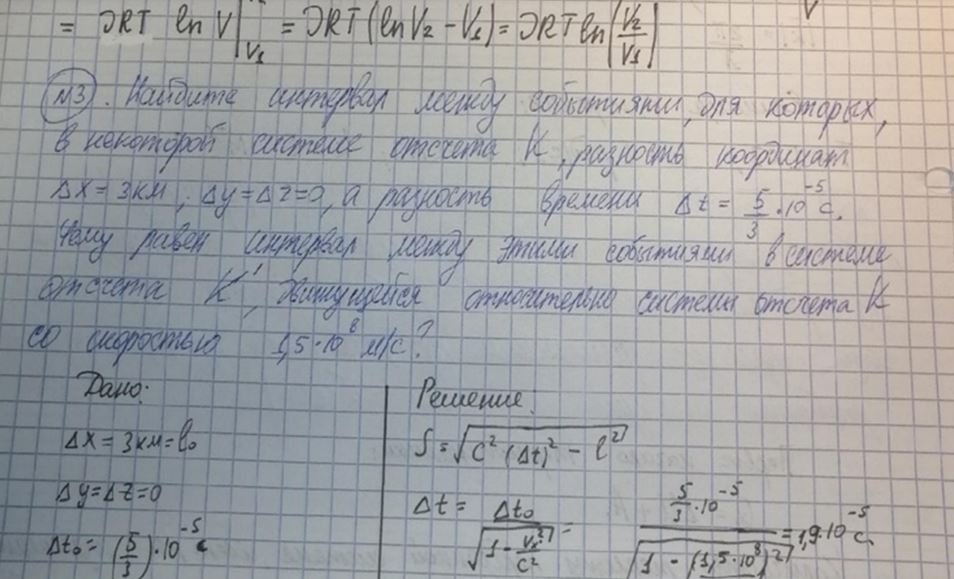 = νRT ln V|V₁ = νRT (ln V₂ - V₁) = νRT ln (V₂/V₁)
№3. Найдите интервал между событиями, для которых,
в некоторой системе отсчета К, разность координат
Δx = 3км, Δy = Δz = 0, а разность времени Δt = 5/3 · 10⁻⁵ с.
Чему равен интервал между этими событиями в системе
отсчета К', движущейся относительно системы отсчета К
со скоростью 1,5 · 10⁸ м/с?
Дано:
Δx = 3км = l₀
Δy = Δz = 0
Δt₀ = (5/3) · 10⁻⁵ с
Решение.
S = √(c² (Δt)² - l²)
Δt = Δt₀ / √(1 - Vx²/c²) = 5/3 · 10⁻⁵ / √(1 - (1,5 · 10⁸)²) = 1,9 · 10⁻⁵ с